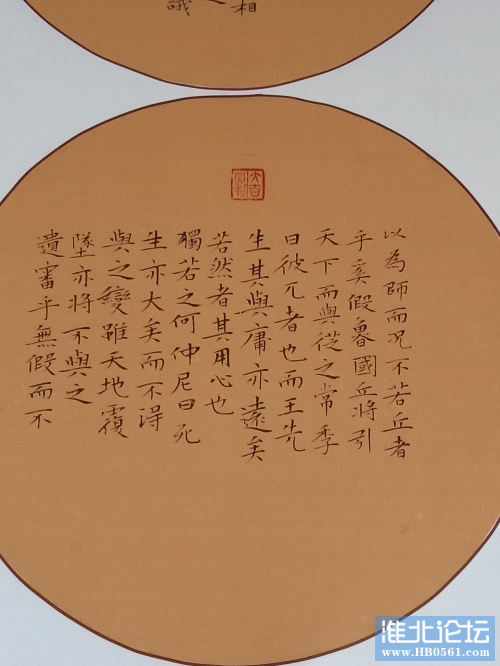 相
以為師而況不若丘者
乎奚假魯國丘將引
天下而與從之常季
曰彼兀者也而王先
生其與庸亦遠矣
若然者其用心也
獨若之何仲尼曰死
生亦大矣而不得
與之變雖天地覆
墜亦將不與之
遺審乎無假而不
淮北论坛
www.HB0561.com